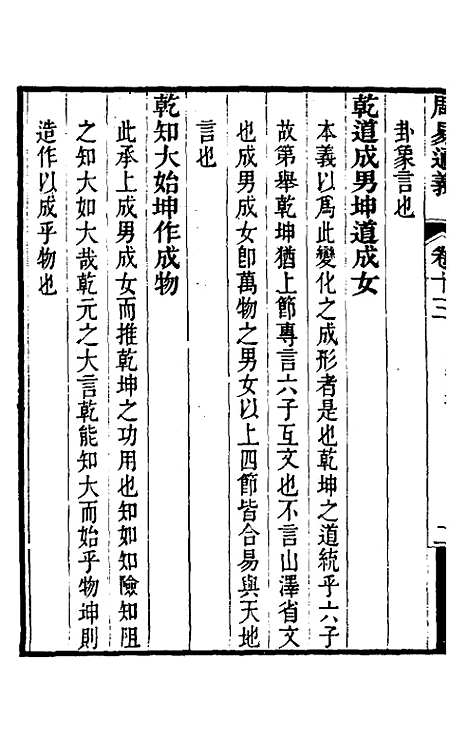 周易通義 卷十三 二
卦象言也
乾道成男坤道成女
本義以爲此變化之成形者是也乾坤之道統乎六子
故第舉乾坤猶上節專言六子互文也不言山澤省文
也成男成女卽萬物之男女以上四節皆合易與天地
言也
乾知大始坤作成物
此承上成男成女而推乾坤之功用也知如知險知阻
之知大如大哉乾元之大言乾能知大而始乎物坤則
造作以成乎物也